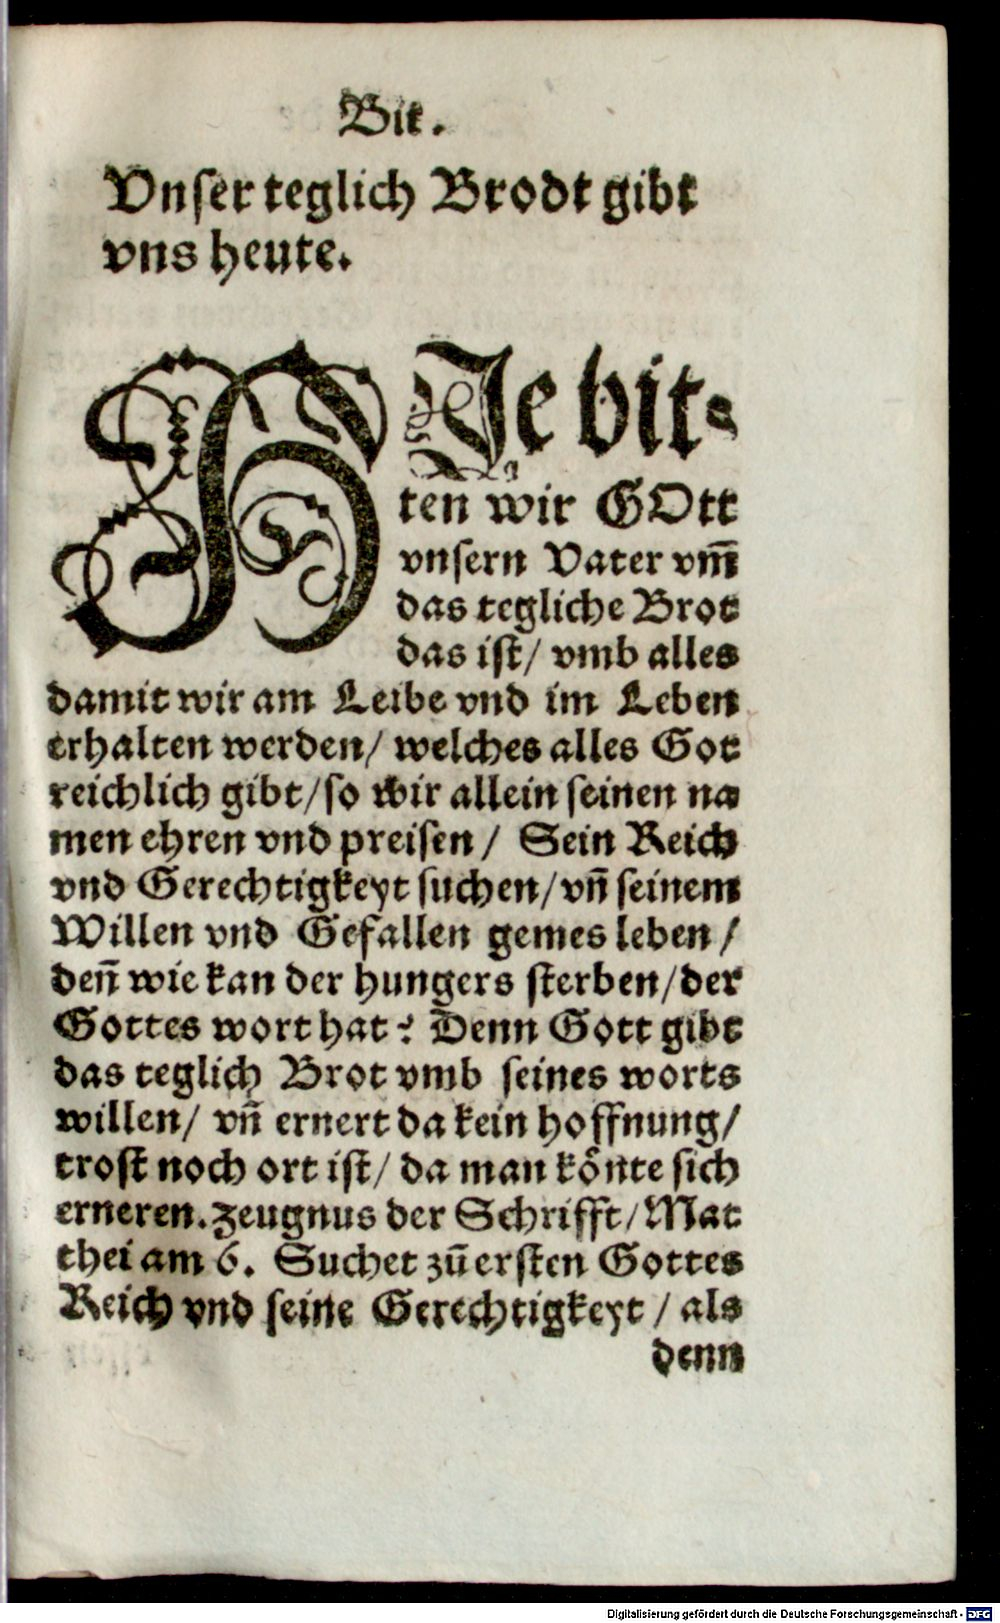 Bit.
Vnser teglich Brodt gibt
vns heute.
HJe bit-
ten wir GOtt
vnsern Vater vm̄
das tegliche Brot
das ist/ vmb alles
damit wir am Leibe vnd im Leben
erhalten werden/ welches alles Got
reichlich gibt/ so wir allein seinen na
men ehren vnd preisen/ Sein Reich
vnd Gerechtigkeyt suchen/ vn̄ seinem
Willen vnd Gefallen gemes leben/
den̄ wie kan der hungers sterben/ der
Gottes wort hat? Denn Gott gibt
das teglich Brot vmb seines worts
willen/ vn̄ ernert da kein hoffnung/
trost noch ort ist/ da man könte sich
erneren. zeugnus der Schrifft/ Mat
thei am 6. Suchet zū ersten Gottes
Reich vnd seine Gerechtigkeyt/ als
denn
Digitalisierung gefördert durch die Deutsche Forschungsgemeinschaft - DFG